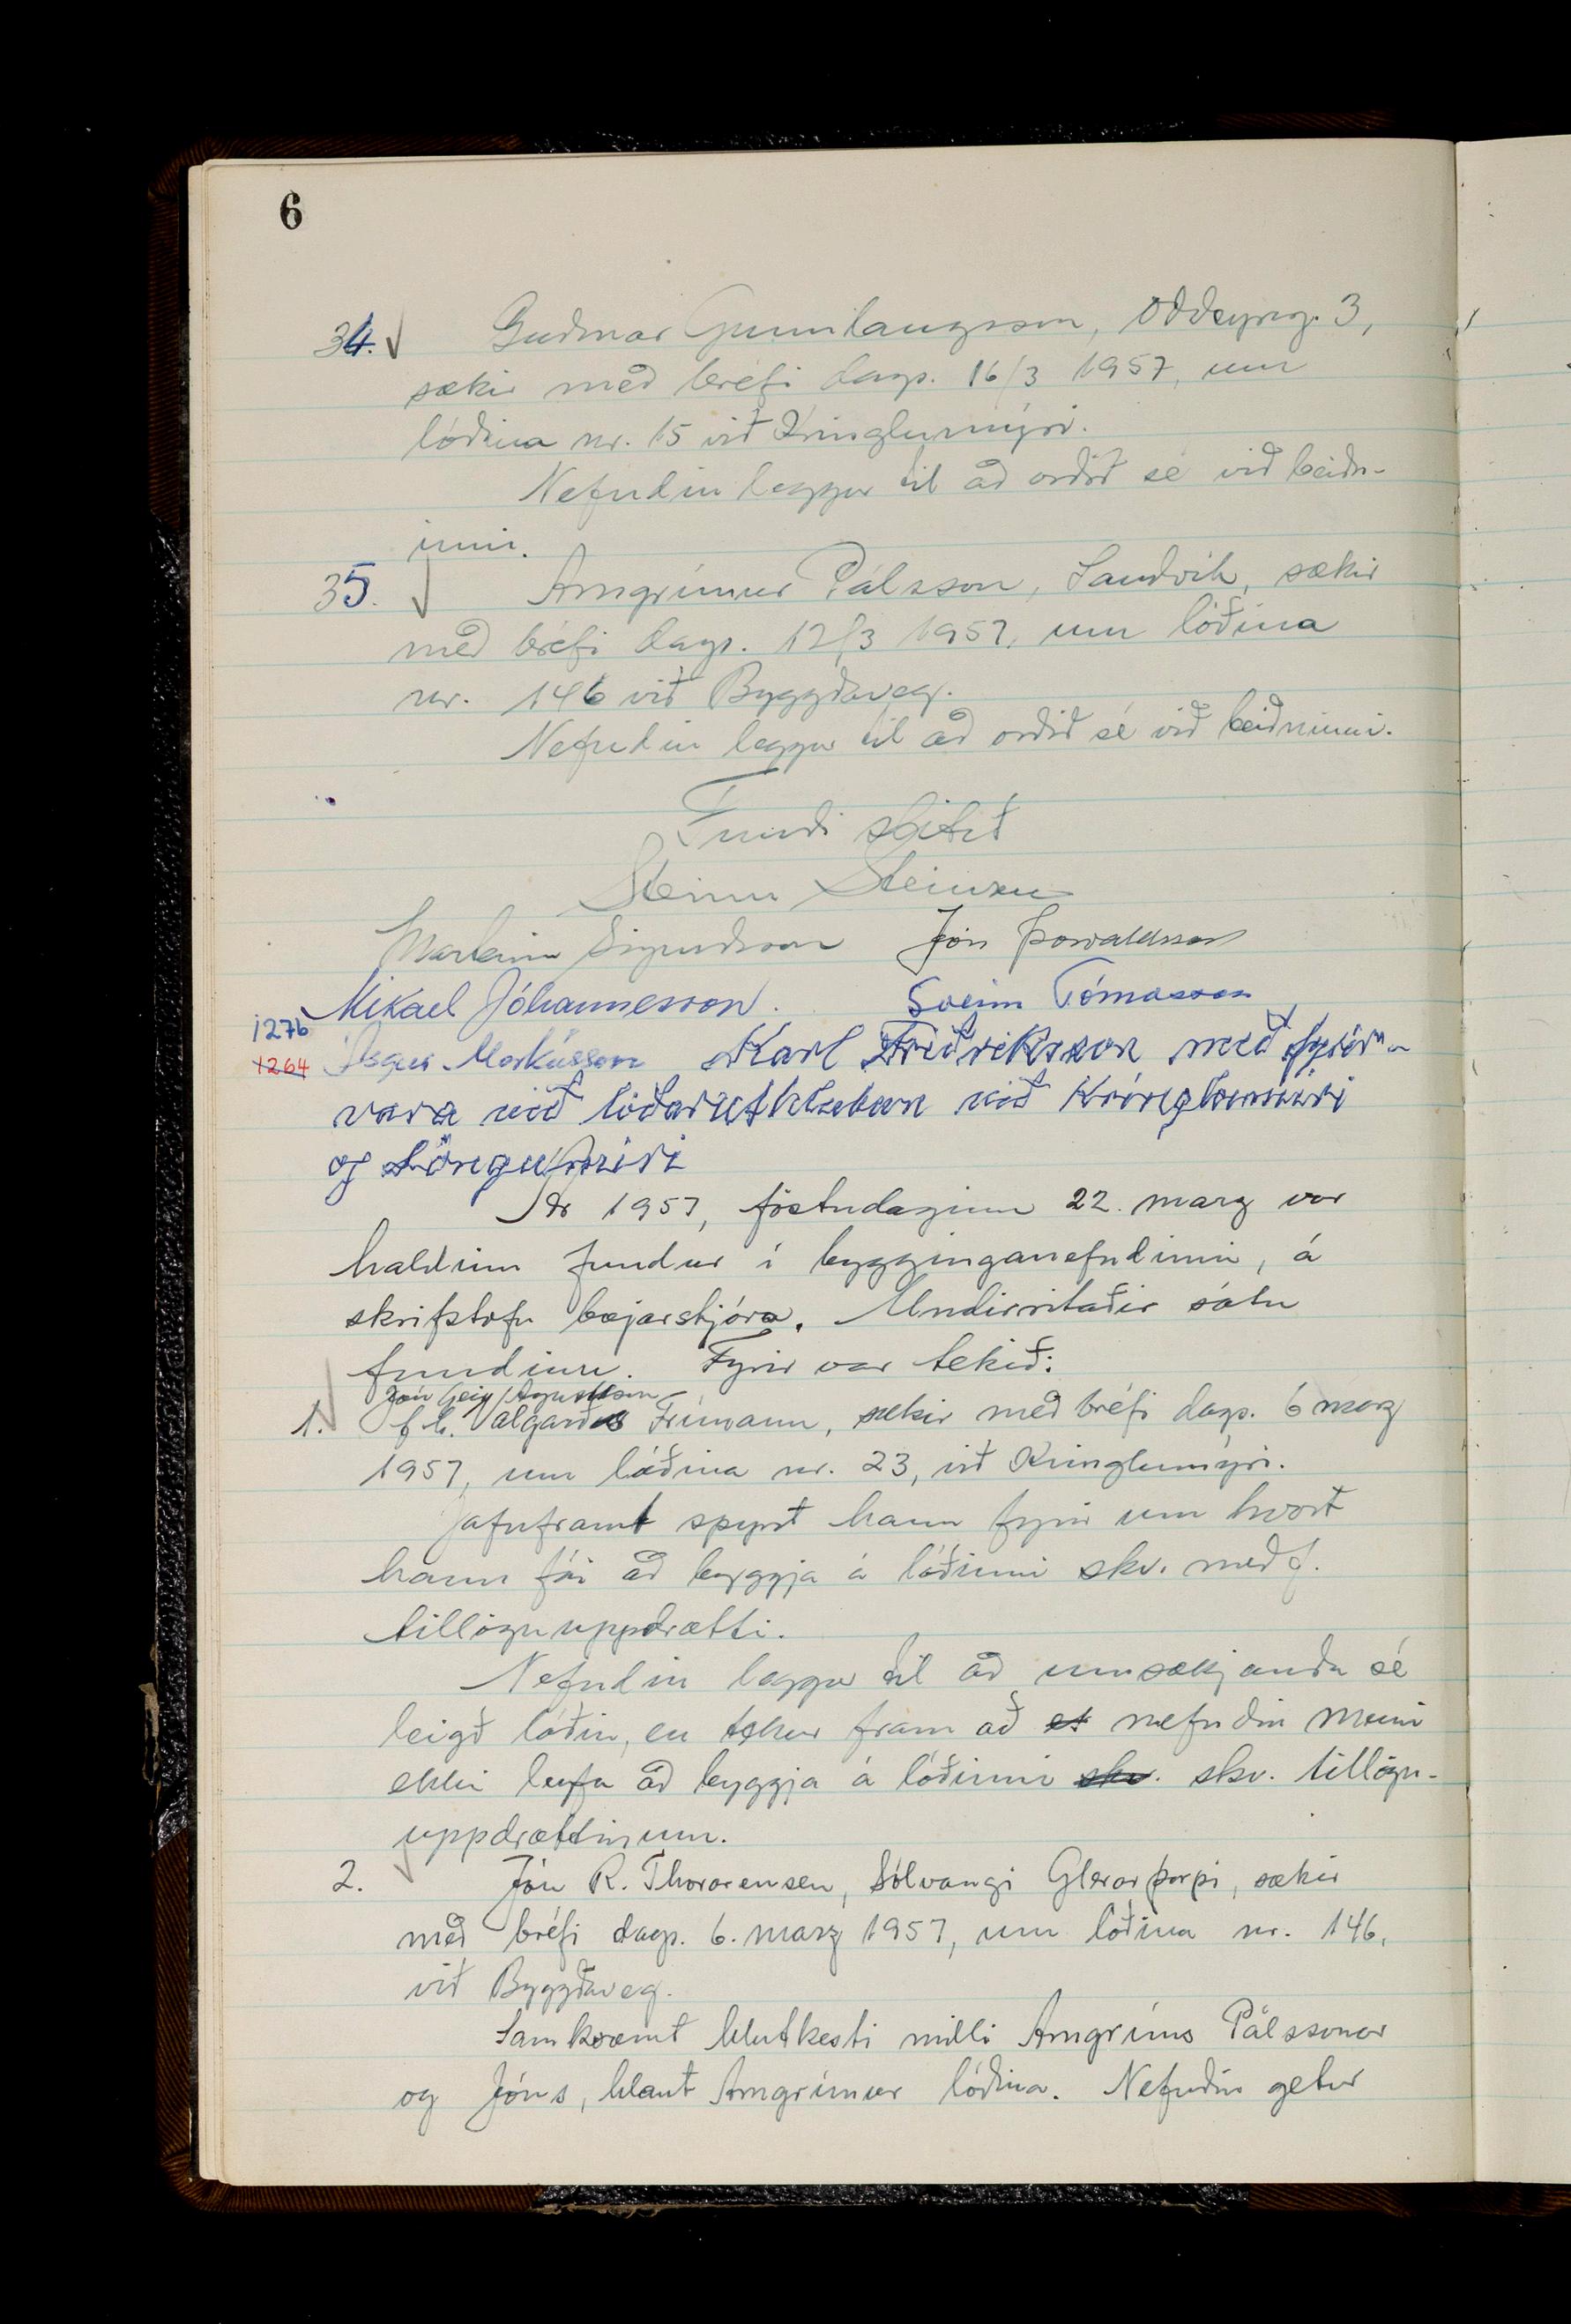 6
34. Guðmar Gunnlaugsson, Oddeyrarg. 3,
sækir með bréfi dags. 16/3 1957, um
lóðina nr. 15 við Kringlumýri.
Nefndin leggur til að orðið sé við beiðn-
inni.
35. Arngrímur Pálsson, Sandvík, sækir
með bréfi dags. 12/3 1957, um lóðina
nr. 146 við Byggðaveg.
Nefndin leggur til að orðið sé við beiðninni.
Fundi slitið
Steinn Steinsen
Marteinn Sigurðsson Jón Þorvaldsson
Mikael Jóhannesson. Sveinn Tómasson
1276
1264 Ásgeir Markússon Karl Friðriksson með fyrir-
vara við lóðarúthlutun við Kringlumýri
og Löngumýri
Ár 1957, föstudaginn 22. marz var
haldinn fundur í bygginganefndinni, á
skrifstofu bæjarstjóra. Undirritaðir sátu
fundinn. Fyrir var tekið:
Jón Geir Ágústsson
1. f.h. Valgarðs Frímann, sækir með bréfi dags. 6 marz
1957, um lóðina nr. 23, við Kringlumýri.
Jafnframt spyrst hann fyrir um hvort
hann fái að byggja á lóðinni skv. meðf.
tillöguuppdrætti.
Nefndin leggur til að umsækjanda sé
leigð lóðin, en tekur fram að et nefndin muni
ekki leyfa að byggja á lóðinni skv. skv. tillögu-
uppdrættinum.
2. Jón R. Thorarensen, Sólvangi Glerárþorpi, sækir
með bréfi dags. 6. marz 1957, um lóðina nr. 146,
við Byggðaveg.
Samkvæmt hlutkesti milli Arngríms Pálssonar
og Jóns, hlaut Arngrímur lóðina. Nefndin getur